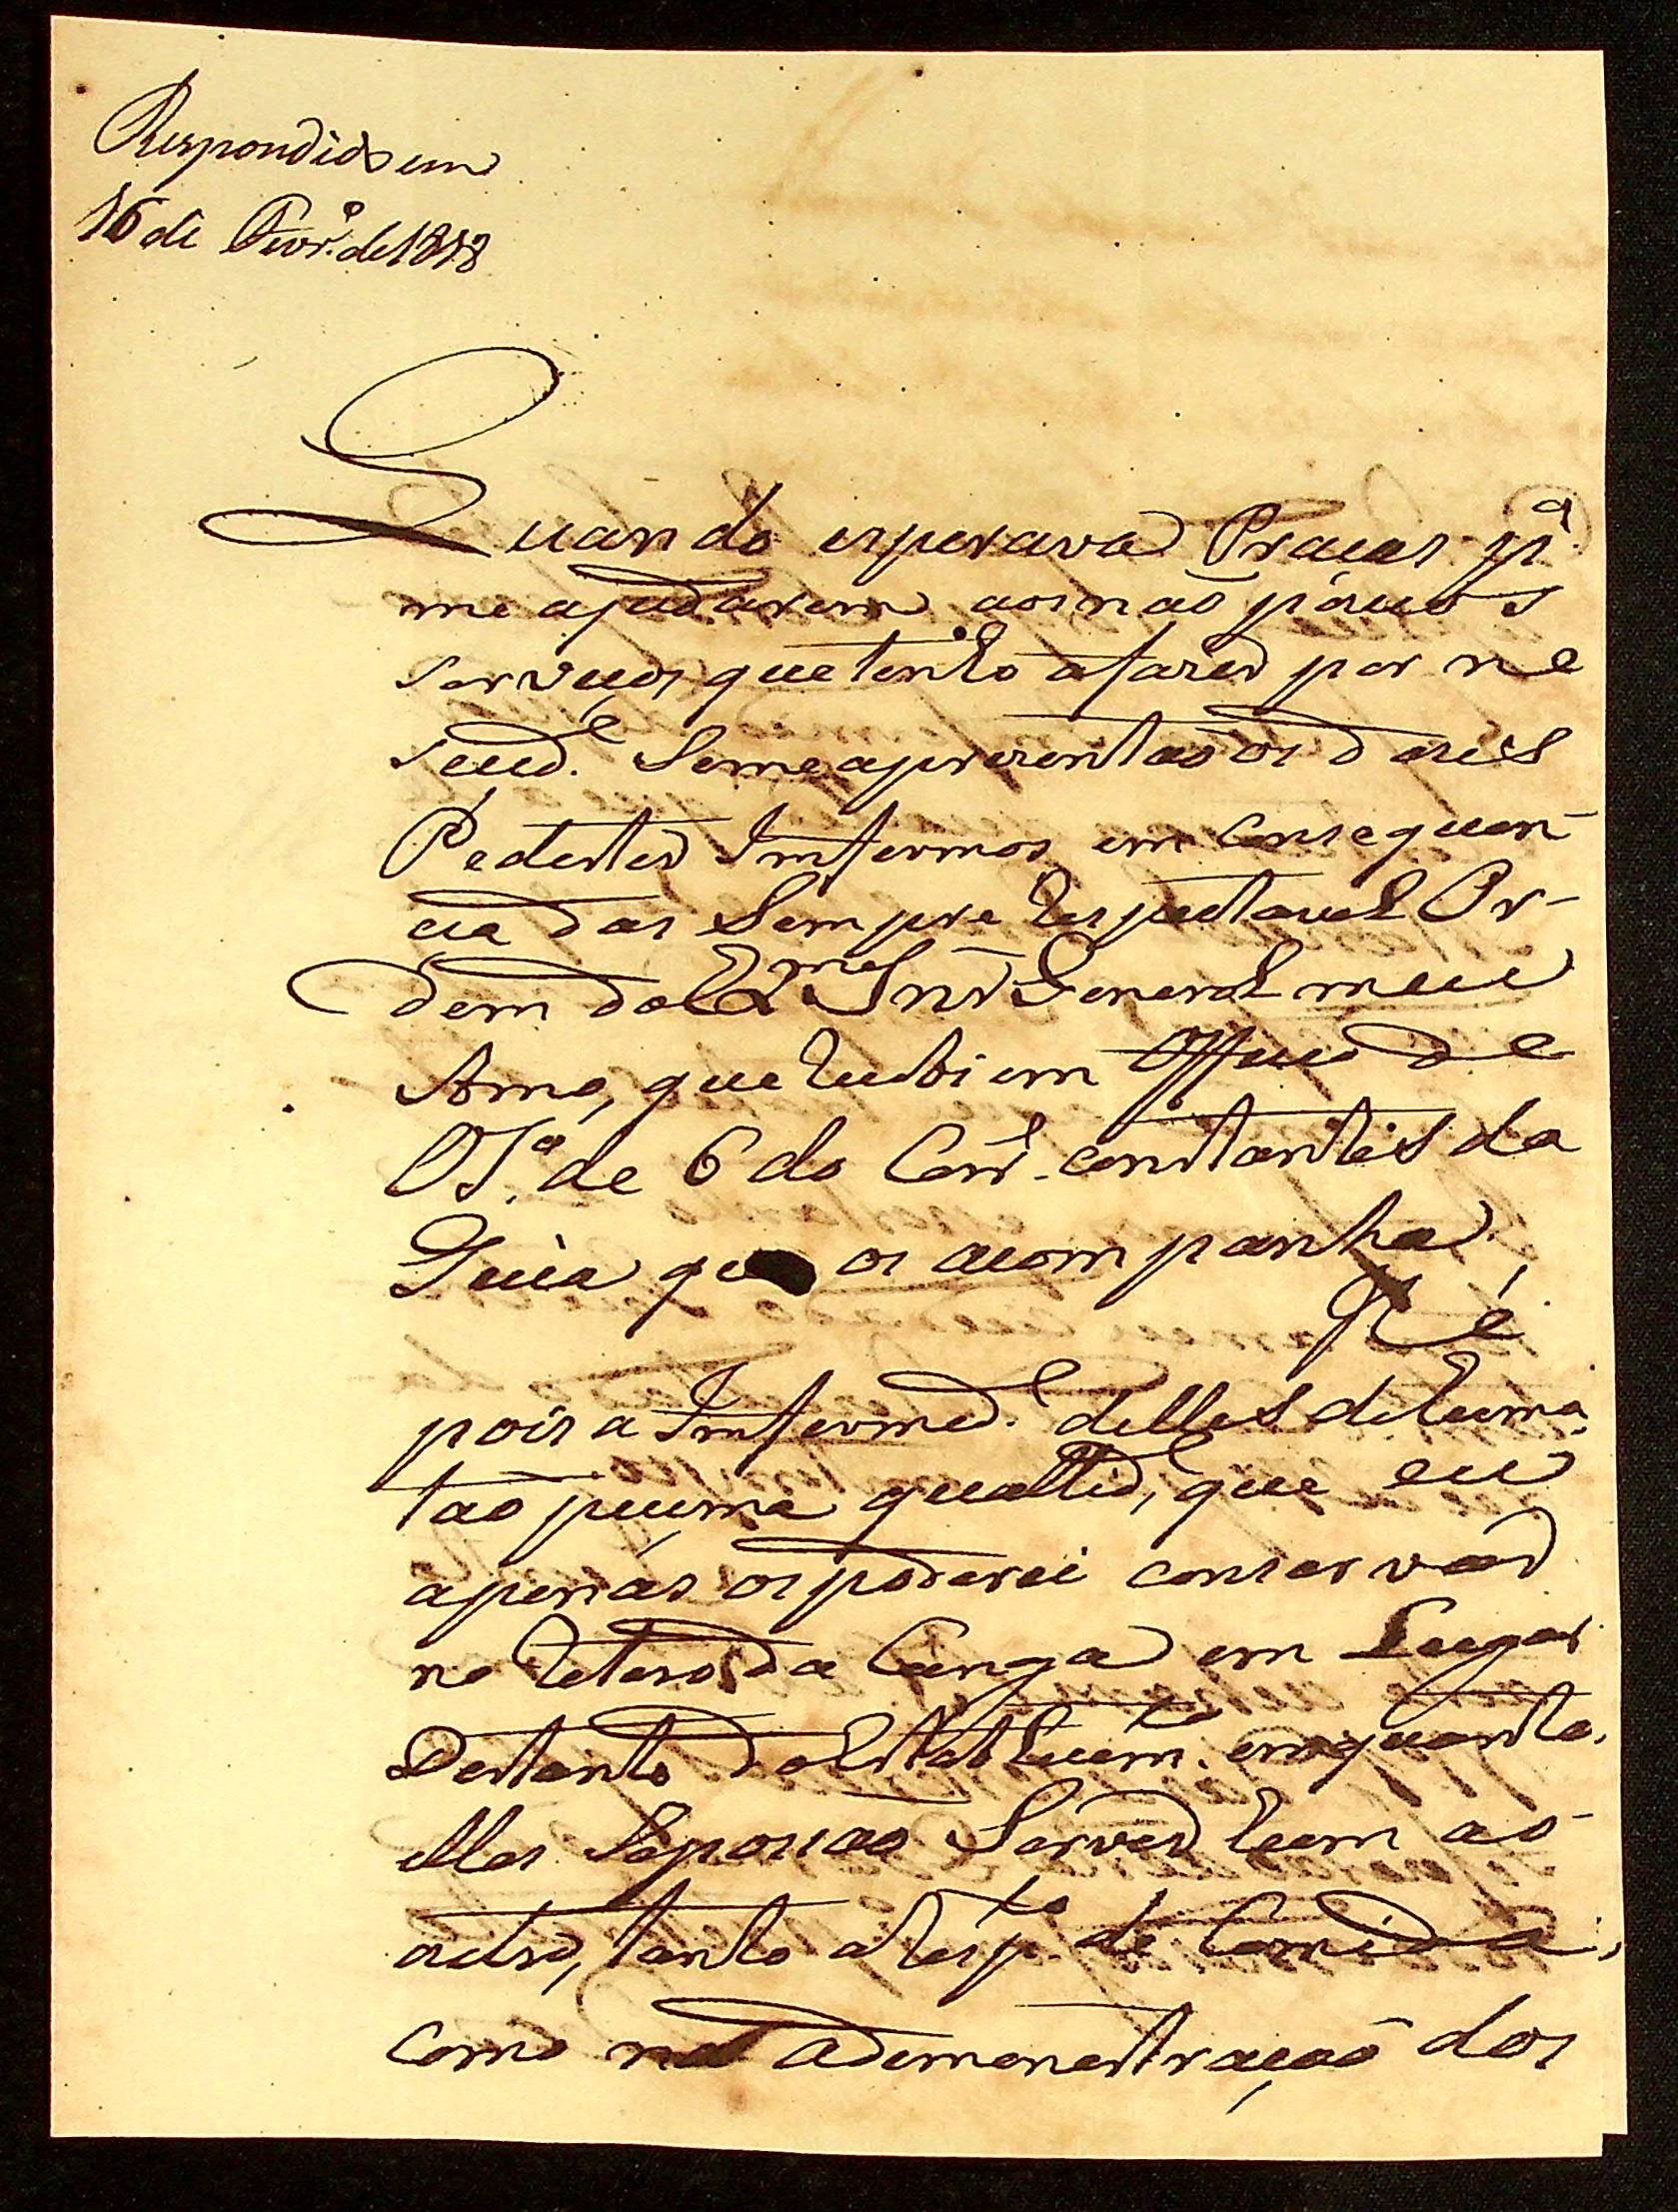 Respondido em
16 de Fevr.º de 1818
Quando esperava Praças p.ª
me ajudarem aos não poucos
serviços, que tenho a fazer por ne
cecid.e Se me aprezentão os dois
Pedestes Imfermos em consequen-
cia das Sempre Respectavel Or-
dem do Ex.mo Snr General meu
Amo, que recebi em Officio de
VS.ª de 6 do Corr.e constantes da
Guia que os acompanha.
He é
pois a Imfermid.e delles de huma
tão pecima qualid.e, que eu
apenas os poderei conservar
no Retero da Canga em Lugar
Destante do Estabelecim.to emquanto
elles Se possão Servir hum ao
outro, tanto a resp.to de Comida,
como na Ademenestração dos